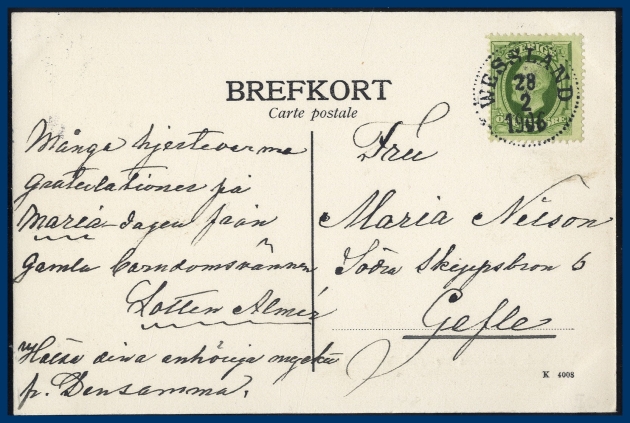 BREFKORT
Carte postale
WESSLAND
28
2
1906
Många hjertevarma
Gratulationer på
Maria-dagen från
Gamla barndomsvännen
Lotten Almér
Helsa dina anhöriga mycket
fr. Densamma.
Fru
Maria Nelson
Södra Skeppsbron 6
Gefle
K 4008